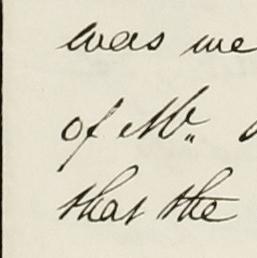 was we
of Mr.
that the